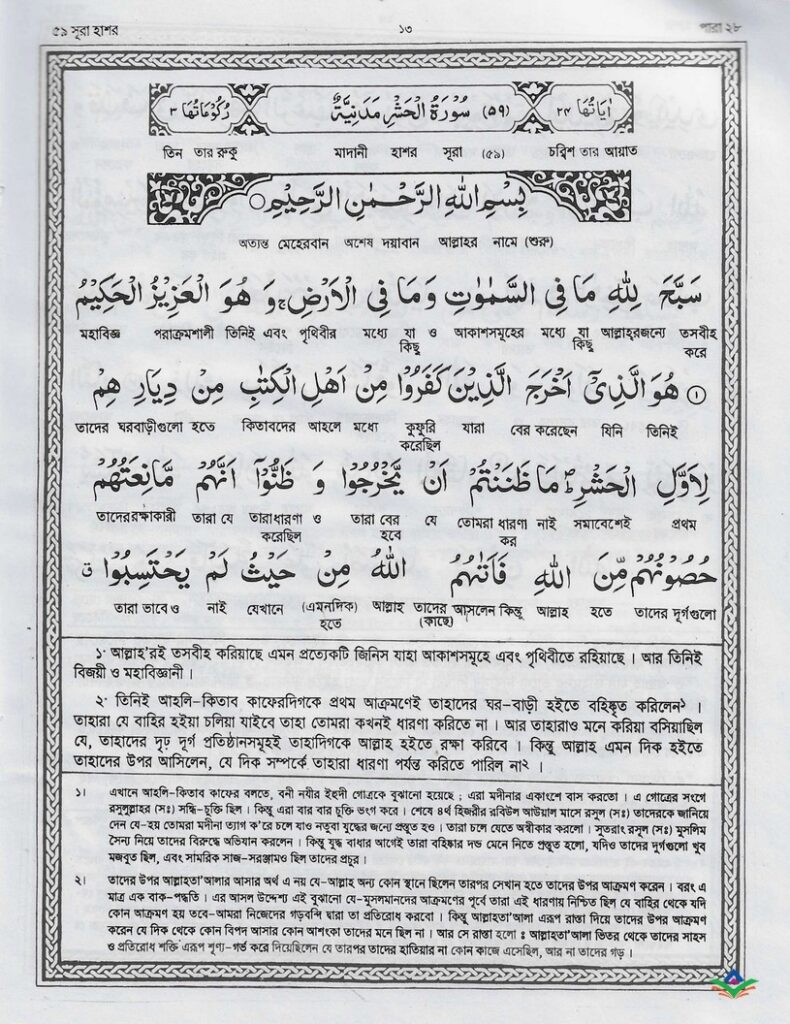 ৫৯ সূরা হাশর ১৩ পারা ২৮
اٰيَاتُهَا ٢٤ (٥٩) سُوْرَةُ الْحَشْرِ مَدَنِيَّةٌ رُكُوْعَاتُهَا ٣
তিন তার রুকু মাদানী হাশর সূরা (৫৯) চব্বিশ তার আয়াত
بِسْمِ اللّٰهِ الرَّحْمٰنِ الرَّحِيْمِ
অত্যন্ত মেহেরবান অশেষ দয়াবান আল্লাহর নামে (শুরু)
سَبَّحَ لِلّٰهِ مَا فِى السَّمٰوٰتِ وَ مَا فِى الْاَرْضِ ۚ وَ هُوَ الْعَزِيْزُ الْحَكِيْمُ
মহাবিজ্ঞ পরাক্রমশালী তিনিই এবং পৃথিবীর মধ্যে যা ও আকাশসমূহের মধ্যে যা আল্লাহরজন্যে তসবীহ
কিছু কিছু করে
۝١ هُوَ الَّذِىْٓ اَخْرَجَ الَّذِيْنَ كَفَرُوْا مِنْ اَهْلِ الْكِتٰبِ مِنْ دِيَارِ هِمْ
তাদের ঘরবাড়ীগুলো হতে কিতাবদের আহলে মধ্যে কুফুরি যারা বের করেছেন যিনি তিনিই
করেছিল
لِاَوَّلِ الْحَشْرِ ؕ مَا ظَنَنْتُمْ اَنْ يَّخْرُجُوْا وَ ظَنُّوْٓا اَنَّهُمْ مَّانِعَتُهُمْ
তাদেররক্ষাকারী তারা যে তারাধারণা ও তারা বের যে তোমরা ধারণা নাই সমাবেশেই প্রথম
করেছিল হবে কর
حُصُوْنُهُمْ مِّنَ اللّٰهِ فَاَتٰىهُمُ اللّٰهُ مِنْ حَيْثُ لَمْ يَحْتَسِبُوْا ق
তারা ভাবেও নাই যেখানে (এমনদিক) আল্লাহ তাদের আসলেন কিন্তু আল্লাহ হতে তাদের দূর্গগুলো
হতে (কাছে)
১· আল্লাহ'রই তসবীহ করিয়াছে এমন প্রত্যেকটি জিনিস যাহা আকাশসমূহে এবং পৃথিবীতে রহিয়াছে । আর তিনিই
বিজয়ী ও মহাবিজ্ঞানী ।
২· তিনিই আহলি-কিতাব কাফেরদিগকে প্রথম আক্রমণেই তাহাদের ঘর-বাড়ী হইতে বহিষ্কৃত করিলেন১ ।
তাহারা যে বাহির হইয়া চলিয়া যাইবে তাহা তোমরা কখনই ধারণা করিতে না । আর তাহারাও মনে করিয়া বসিয়াছিল
যে, তাহাদের দৃঢ় দূর্গ প্রতিষ্ঠানসমূহই তাহাদিগকে আল্লাহ হইতে রক্ষা করিবে । কিন্তু আল্লাহ এমন দিক হইতে
তাহাদের উপর আসিলেন, যে দিক সম্পর্কে তাহারা ধারণা পর্যন্ত করিতে পারিল না২ ।
১। এখানে আহলি-কিতাব কাফের বলতে, বনী নযীর ইহুদী গোত্রকে বুঝানো হয়েছে ; এরা মদীনার একাংশে বাস করতো । এ গোত্রের সংগে
রসূলুল্লাহর (সঃ) সন্ধি-চুক্তি ছিল । কিন্তু এরা বার বার চুক্তি ভংগ করে । শেষে ৪র্থ হিজরীর রবিউল আউয়াল মাসে রসূল (সঃ) তাদেরকে জানিয়ে
দেন যে-হয় তোমরা মদীনা ত্যাগ ক'রে চলে যাও নতুবা যুদ্ধের জন্যে প্রস্তুত হও । তারা চলে যেতে অস্বীকার করলো । সুতরাং রসূল (সঃ) মুসলিম
সৈন্য নিয়ে তাদের বিরুদ্ধে অভিযান করলেন । কিন্তু যুদ্ধ বাধার আগেই তারা বহিষ্কার দন্ড মেনে নিতে প্রস্তুত হলো, যদিও তাদের দূর্গগুলো খুব
মজবুত ছিল, এবং সামরিক সাজ-সরঞ্জামও ছিল তাদের প্রচুর ।
২। তাদের উপর আল্লাহতা'আলার আসার অর্থ এ নয় যে-আল্লাহ অন্য কোন স্থানে ছিলেন তারপর সেখান হতে তাদের উপর আক্রমণ করেন । বরং এ
মাত্র এক বাক-পদ্ধতি । এর আসল উদ্দেশ্য এই বুঝানো যে-মুসলমানদের আক্রমণের পূর্বে তারা এই ধারণায় নিশ্চিত ছিল যে বাহির থেকে যদি
কোন আক্রমণ হয় তবে-আমরা নিজেদের গড়বন্দি দ্বারা তা প্রতিরোধ করবো । কিন্তু আল্লাহতা'আলা এরূপ রাস্তা দিয়ে তাদের উপর আক্রমণ
করেন যে দিক থেকে কোন বিপদ আসার কোন আশংকা তাদের মনে ছিল না । আর সে রাস্তা হলো ঃ আল্লাহতা'আলা ভিতর থেকে তাদের সাহস
ও প্রতিরোধ শক্তি এরূপ শূণ্য-গর্ভ করে দিয়েছিলেন যে তারপর তাদের হাতিয়ার না কোন কাজে এসেছিল, আর না তাদের গড় ।